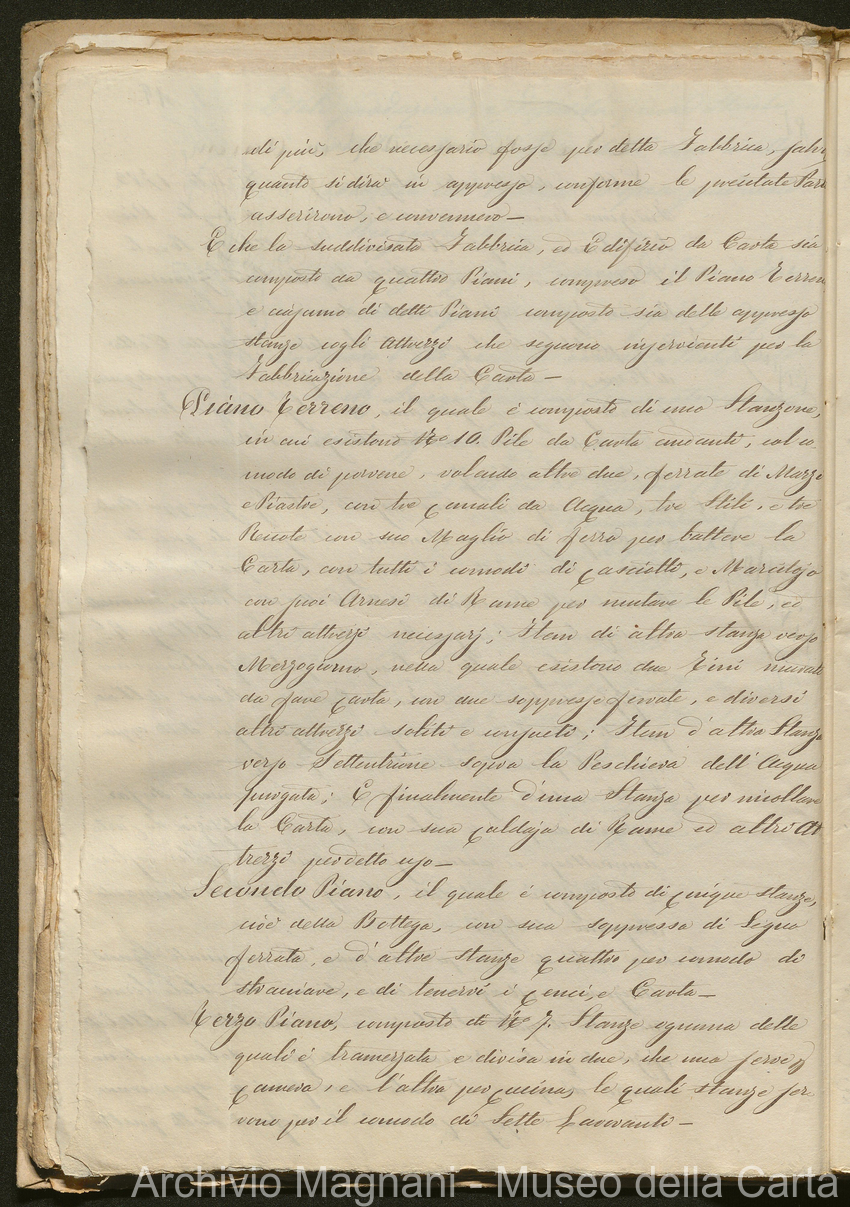 di più, che necessario fosse per detta Fabbrica, salvo
quanto si dirà in appresso, conforme le precitate Parti
asserirono, e convennero —
E che la suddivisata Fabbrica, ed Edifizio da Carta sia
composto da quattro Piani, compreso il Piano Terreno
e ciascuno di detti Piani composto sia delle appresso
stanze cogli Attrezzi che seguono inservienti per la
Fabbricazione della Carta —
Piano Terreno, il quale è composto di uno Stanzone,
in cui esistono N.o 10. Pile da Carta andanti, col co
modo di porvene, volendo altre due, ferrate di Mazzi
e Piastre, con tre canali da Acqua, tre Stili, e tre
Ruote con suo Maglio di ferro per battere la
Carta, con tutti i comodi di cascietti, e
con suoi Arnesi di Rame per mutare le Pile, ed
altri attrezzi necessarj; Item di altra stanza verso
Mezzogiorno, nella quale esistono due Tini murati
da fare carta, con due soppresse ferrate, e diversi
altri attrezzi soliti e consueti; Item d'altra Stanza
verso Settentrione sopra la Peschiera dell'Acqua
purgata; E finalmente d'una Stanza per
la Carta, con sua caldaja di Rame ed altri At
trezzi per detto uso —
Secondo Piano, il quale è composto di cinque stanze,
cioè della Bottega, con sua soppressa di Legno
ferrata, e d'altre stanze quattro per comodo di
stracciare, e di tenervi i cenci, e Carta —
Terzo Piano, composto di N.o 7. Stanze ognuna delle
quali è tramezzata e divisa in due, che una serve p
camera, e l'altra per cucina, le quali stanze ser
vono per il comodo di Sette Lavoranti —
Archivio Magnani - Museo della Carta